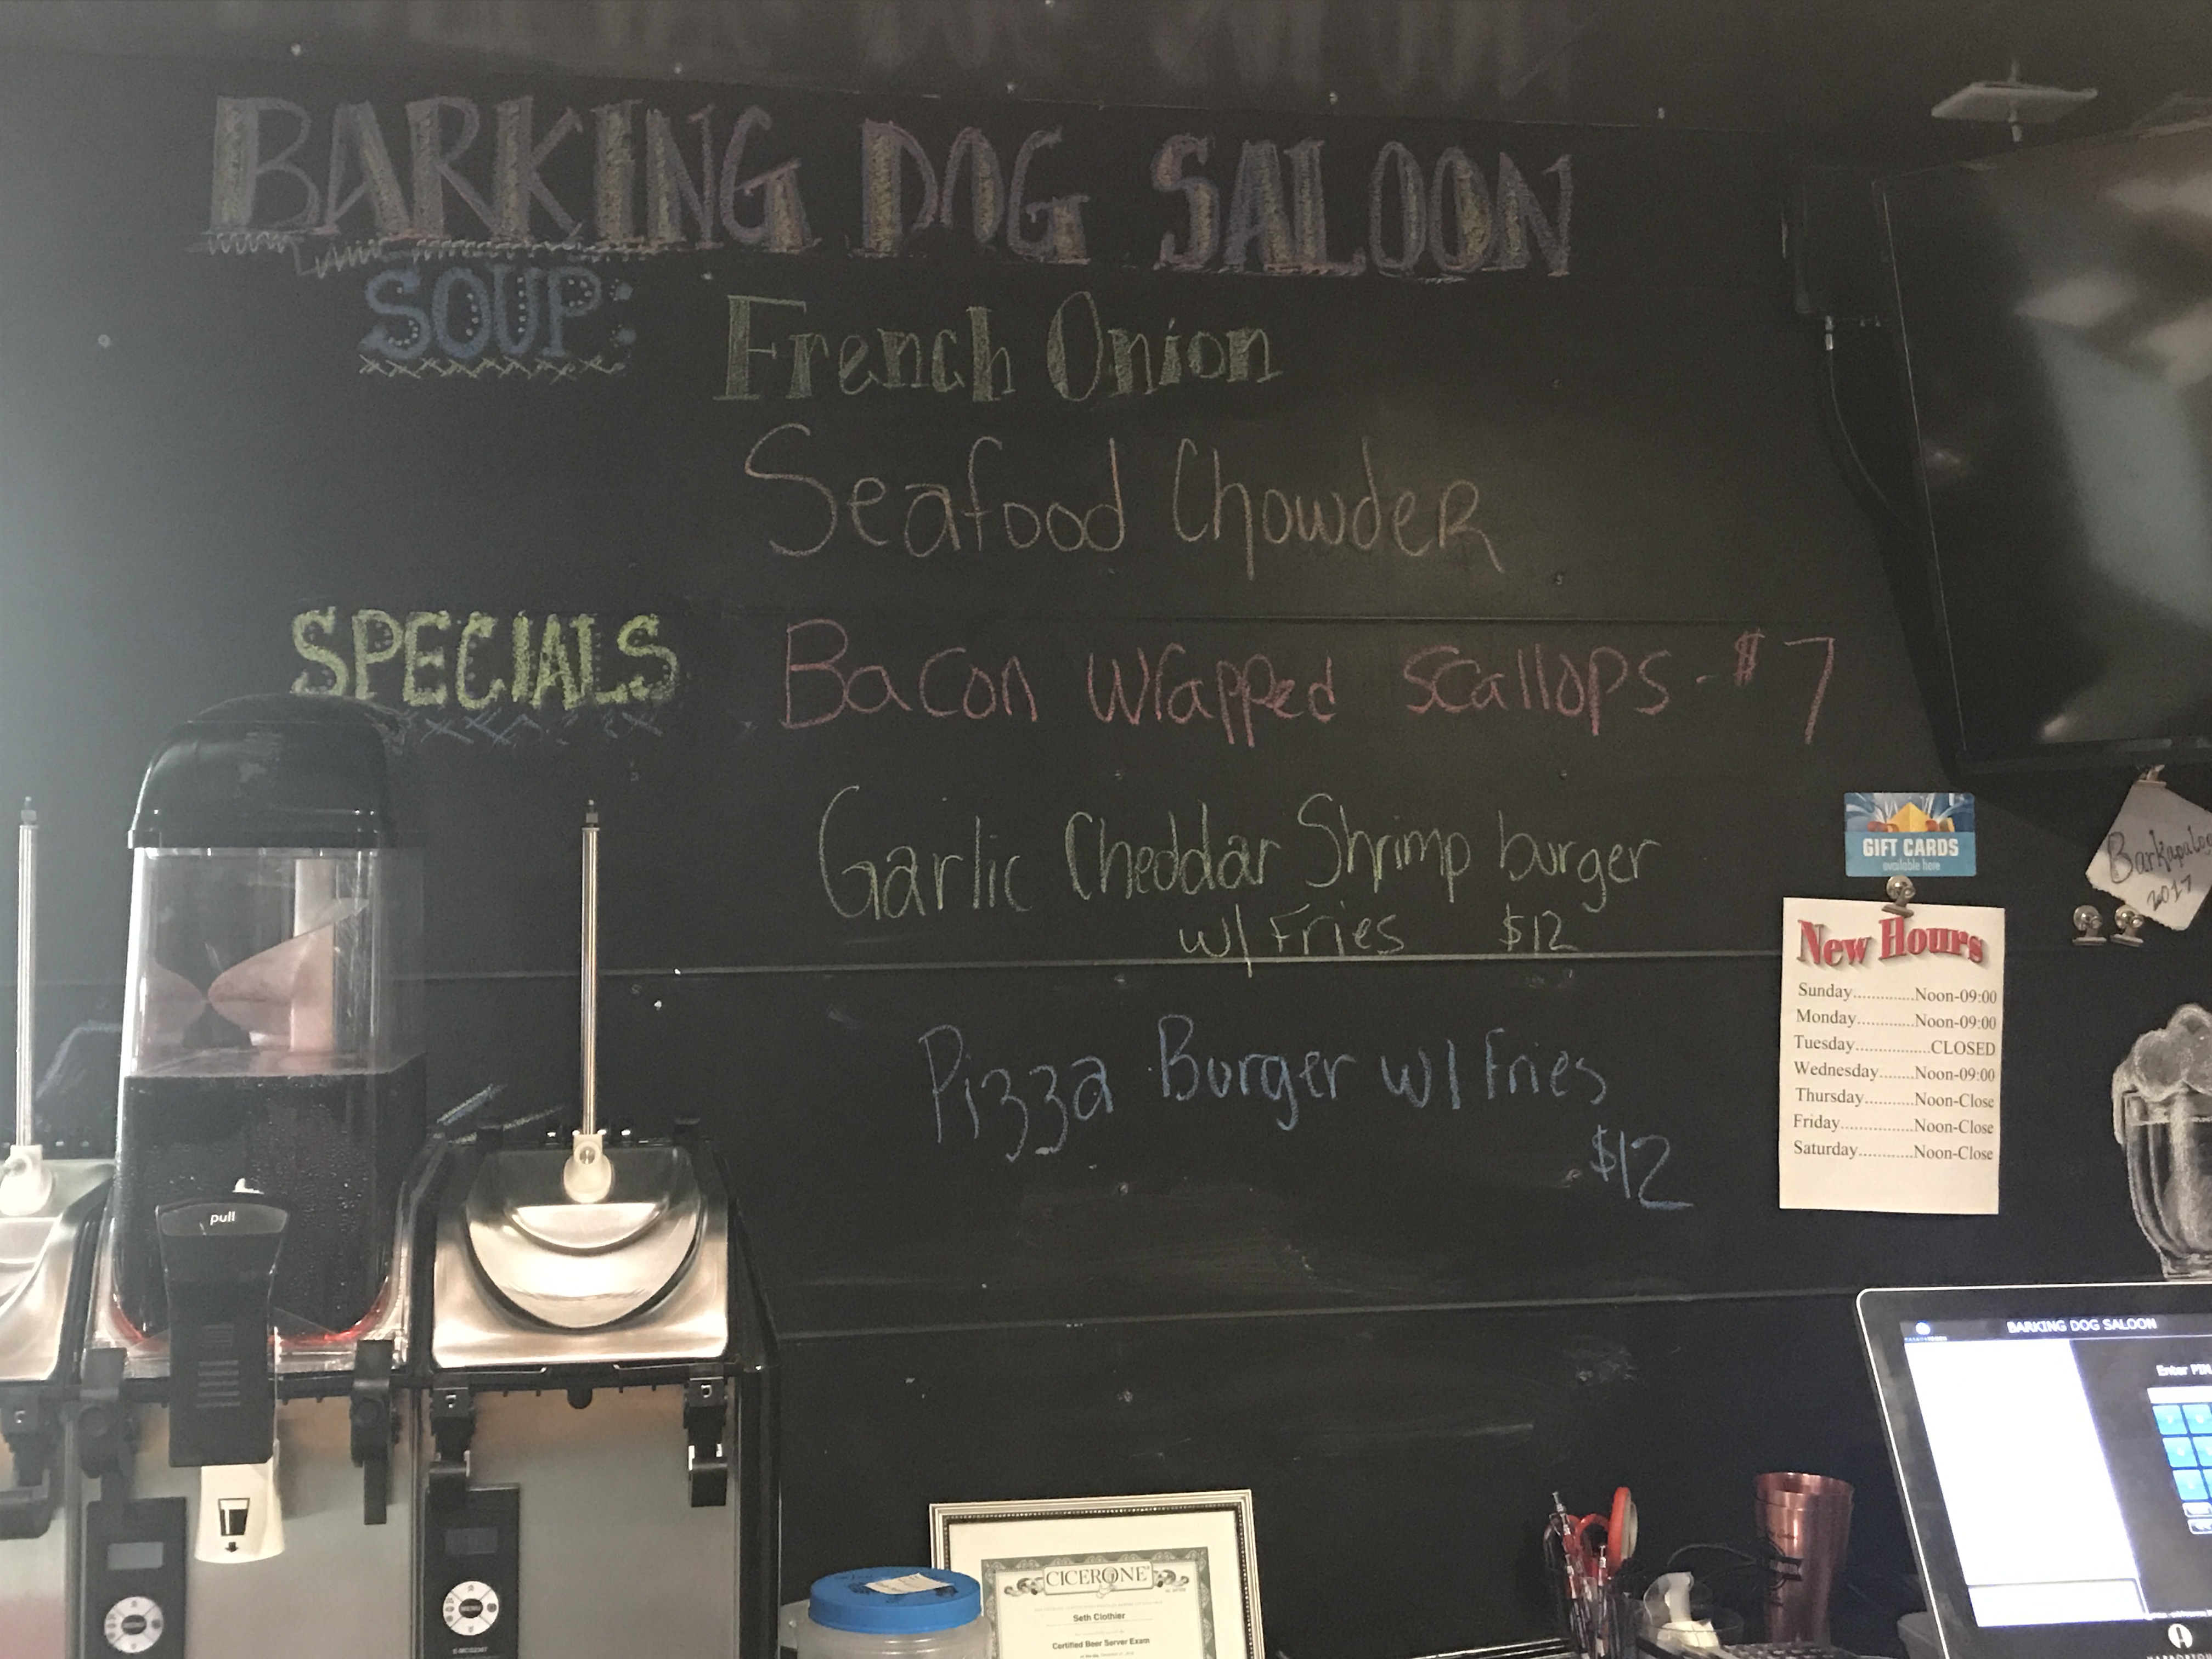 BARKING DOG SALOON
SOUP:
French Onion
Seafood Chowder
SPECIALS
Bacon wrapped scallops - $7
Garlic Cheddar Shrimp burger
w/ Fries $12
Pizza Burger w/ Fries
$12
GIFT CARDS
available here
Barkapaloo
2017
New Hours
Sunday..............Noon-09:00
Monday............Noon-09:00
Tuesday.................CLOSED
Wednesday........Noon-09:00
Thursday...........Noon-Close
Friday...............Noon-Close
Saturday............Noon-Close
pull
MENU
MENU
BARKING DOG SALOON
Enter PIN
CICERONE
Seth Clothier
Certified Beer Server Exam